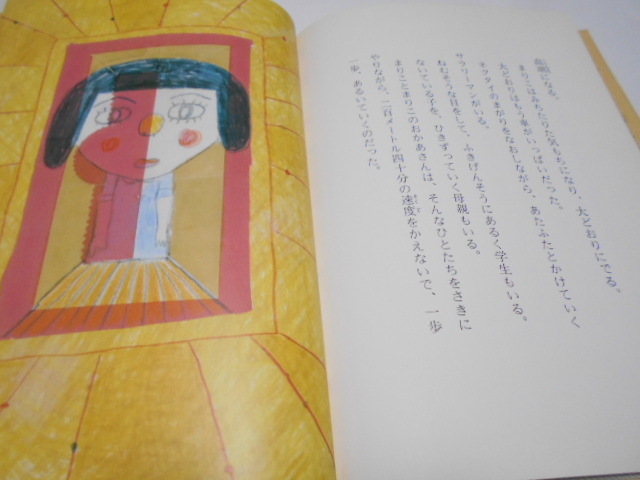 高潮になる。
まりこはみちたりた気もちになり、大どおりにでる。
大どおりはもう車がいっぱいだった。
ネクタイのまがりをなおしながら、あたふたとかけていく
サラリーマンがいる。
ねむそうな目をして、ふきげんそうにあるく学生もいる。
ないている子を、ひきずっていく母親もいる。
まりことまりこのおかあさんは、そんなひとたちをさきに
やりながら、二百メートル四十分の速度をかえないで、一歩
一歩、あるいていくのだった。